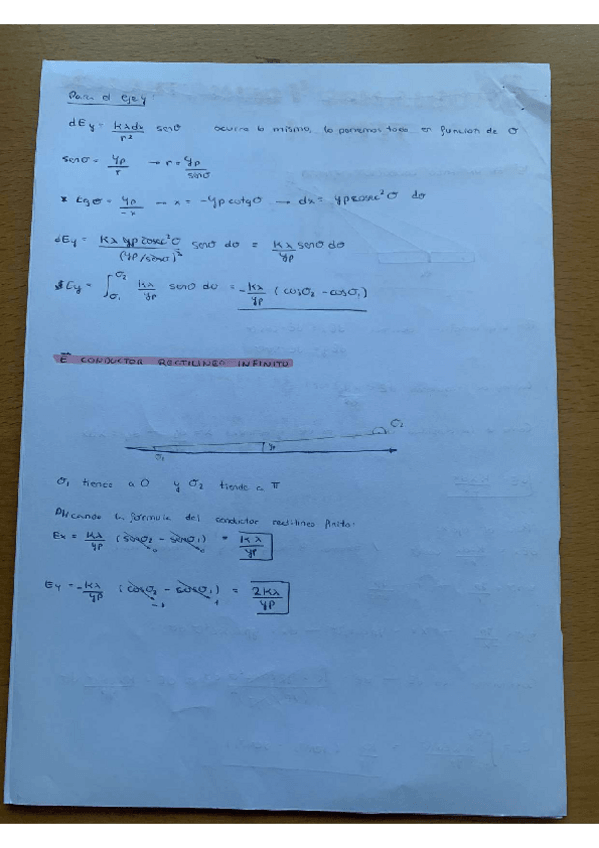 Para el eje y
dEy = Kλdx/r² senσ ocurre lo mismo, lo ponemos todo en función de σ
senσ = yp/r → r = yp/senσ
* tgσ = yp/-x → x = -yp cotgσ → dx = yp cosec²σ dσ
dEy = Kλ yp cosec²σ/(yp/senσ)² senσ dσ = Kλ/yp senσ dσ
Ey = ∫σ₁^σ₂ Kλ/yp senσ dσ = -Kλ/yp (cosσ₂ - cosσ₁)
E CONDUCTOR RECTILINEO INFINITO
σ₂
yp
σ₁
σ₁ tiende a 0 y σ₂ tiende a π
Aplicando la formula del conductor rectilineo finito:
Ex = Kλ/yp (senσ₂ - senσ₁) = Kλ/yp
0 0
Ey = -Kλ/yp (cosσ₂ - cosσ₁) = 2Kλ/yp
-1 1